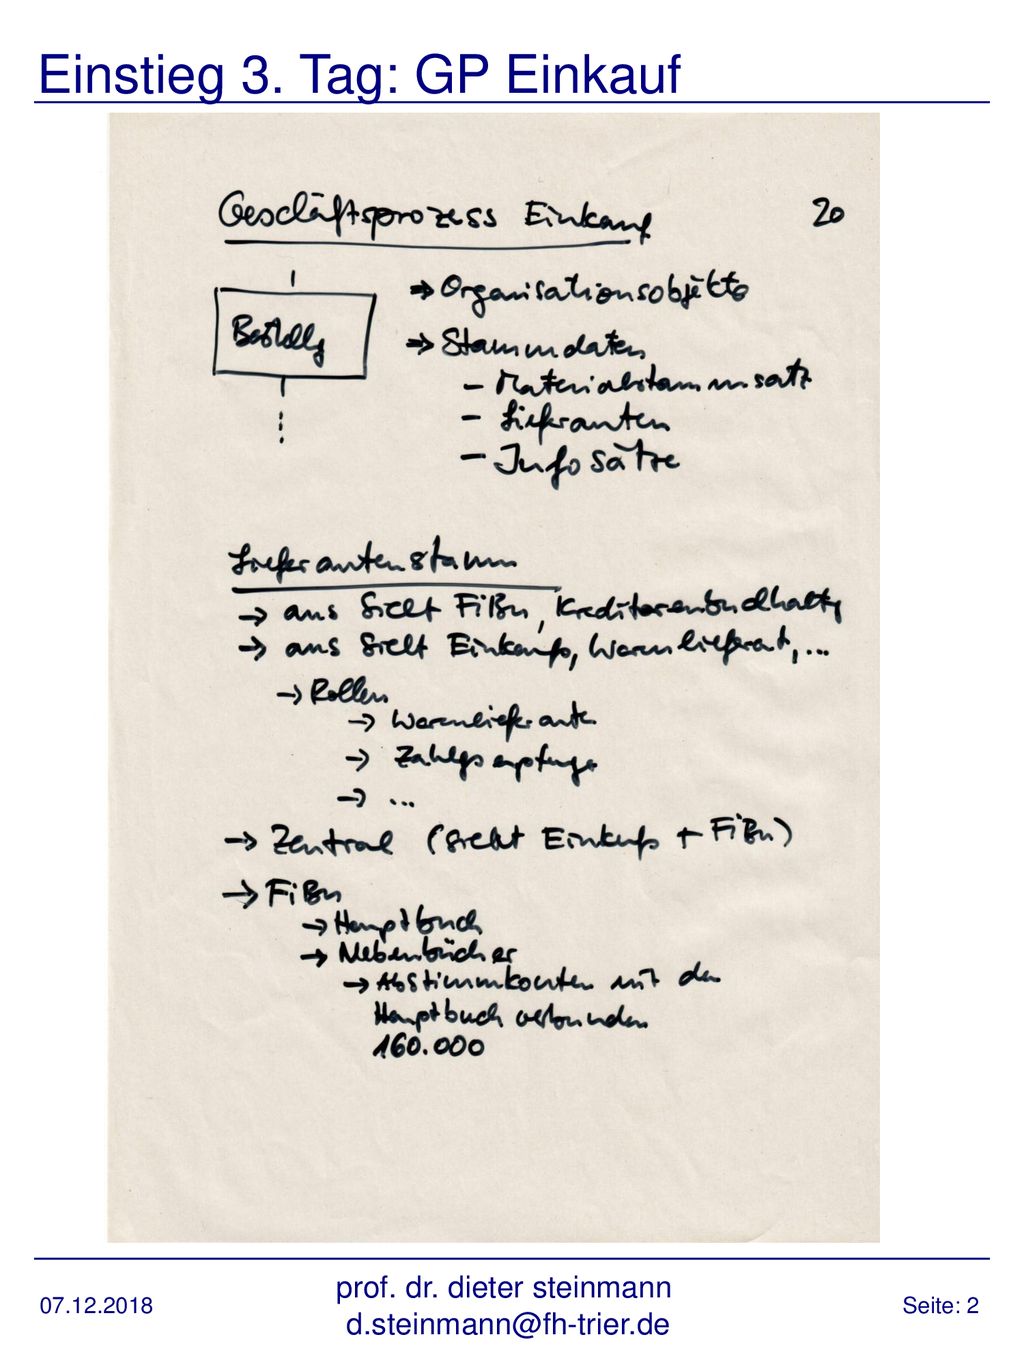 Einstieg 3. Tag: GP Einkauf
Geschäftsprozess Einkauf
20
Bestellg
→ Organisationsobjekte
→ Stammdaten
- Materialstammsatz
- Lieferanten
- Infosätze
Lieferantenstamm
→ aus Sicht FiBu, Kreditorenbuchhaltg
→ aus Sicht Einkaufs, Warenlieferant, ...
→ Rollen
→ Warenlieferanten
→ Zahlgsempfänger
→ ...
→ Zentral (Sicht Einkaufs + FiBu)
→ FiBu
→ Hauptbuch
→ Nebenbücher
→ Abstimmkonten mit dem
Hauptbuch verbunden
160.000
07.12.2018
prof. dr. dieter steinmann
d.steinmann@fh-trier.de
Seite: 2